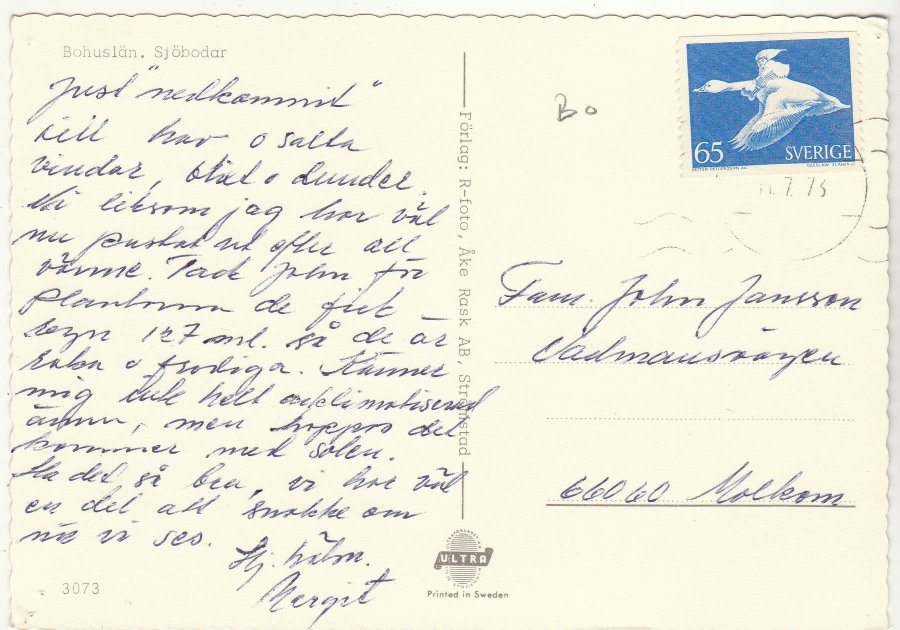 Bohuslän. Sjöbodar
Just "nedkommit"
till hav o salta
vindar, blåst o dunder.
Ni liksom jag har väl
nu pustat ut efter all
värme. Tack John för
plantorna de fick
regn 127 ml. så de är
raka o frodiga. Känner
mig inte helt acklimatiserad
ännu, men hoppas det
kommer med solen.
Ha det så bra, vi har väl
en del att snakke om
när vi ses.
Hj. hälsn.
Margit
3073
Förlag: R-foto, Åke Rask AB. Strömstad
ULTRA
Printed in Sweden
Bo
65 SVERIGE
PETTER PETTERSSON DEL.
CZESLAW SLANIA SC.
7.73
Fam. John Jansson
Vadmansvägen
66060 Molkom